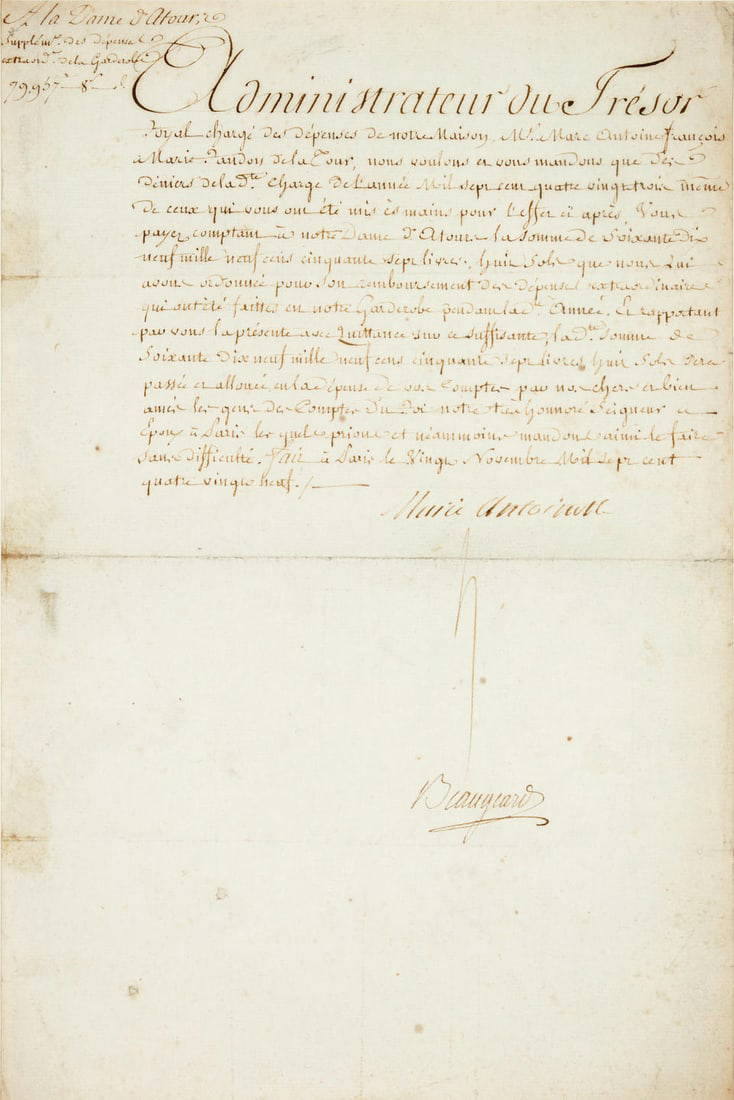 A la Dame d'Atour,
Supplémt. des dépenses
extraordres. de la Garderobe
79,957# 8s
Administrateur du Trésor
Royal chargé des dépenses de notre Maison, Mr. Marc Antoine François
Marie Randon de la Tour, nous voulons et vous mandons que des
deniers de la dte. charge de l'année Mil sept cent quatre vingt trois même
de ceux qui vous ont été mis ès mains pour l'effet ci après, Vous
payez comptant à notre Dame d'Atours la somme de Soixante dix
neuf mille neuf cens cinquante sept livres, huit Sols que nous lui
avons ordonnée pour son remboursement des dépenses extraordinaires
qui ont été faites en notre Garderobe pendant lade. Année. Et rapportant
par vous la présente avec Quittance sur ce suffisante, la dte. Somme de
Soixante Dix neuf mille neuf cens cinquante sept livres, huit Sols sera
passée et allouée en la dépense de vos Comptes par nos chers et bien
amés les gens des Comptes du Roi notre très honnoré Seigneur et
Epoux à Paris les quels prions et néammoins mandons ainsi le faire
sans difficulté. Fait à Paris le Vingt Novembre Mil sept cent
quatre vingt neuf. /
Marie Antoinette
Beaugeard